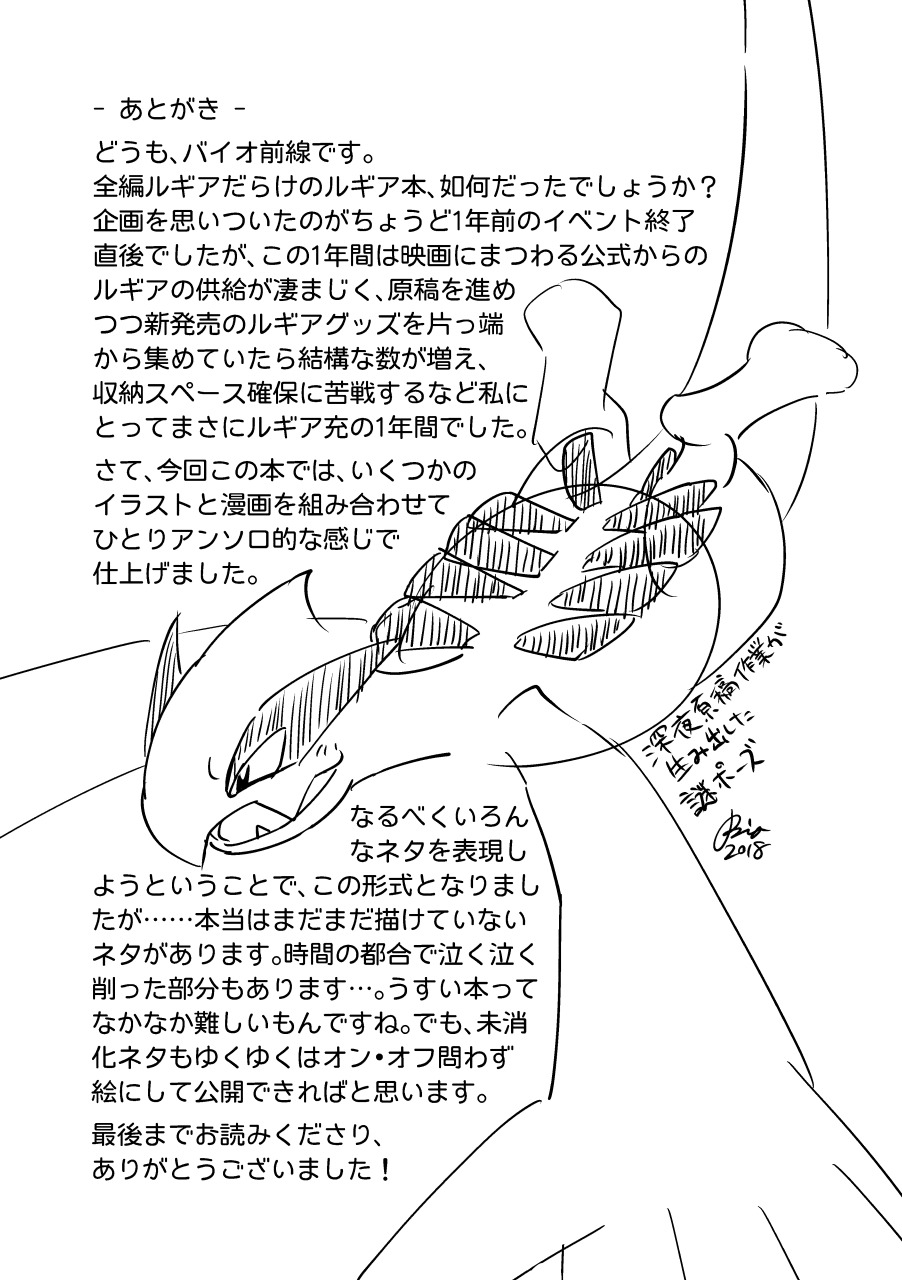 - あとがき -
どうも、バイオ前線です。
全編ルギアだらけのルギア本、如何だったでしょうか？
企画を思いついたのがちょうど1年前のイベント終了
直後でしたが、この1年間は映画にまつわる公式からの
ルギアの供給が凄まじく、原稿を進め
つつ新発売のルギアグッズを片っ端
から集めていたら結構な数が増え、
収納スペース確保に苦戦するなど私に
とってまさにルギア充の1年間でした。
さて、今回この本では、いくつかの
イラストと漫画を組み合わせて
ひとりアンソロ的な感じで
仕上げました。
なるべくいろん
なネタを表現し
ようということで、この形式となりまし
たが……本当はまだまだ描けていない
ネタがあります。時間の都合で泣く泣く
削った部分もあります…。うすい本って
なかなか難しいもんですね。でも、未消
化ネタもゆくゆくはオン・オフ問わず
絵にして公開できればと思います。
最後までお読みくださり、
ありがとうございました！
深夜原稿作業が
生み出した
謎ポーズ
Bio
2018